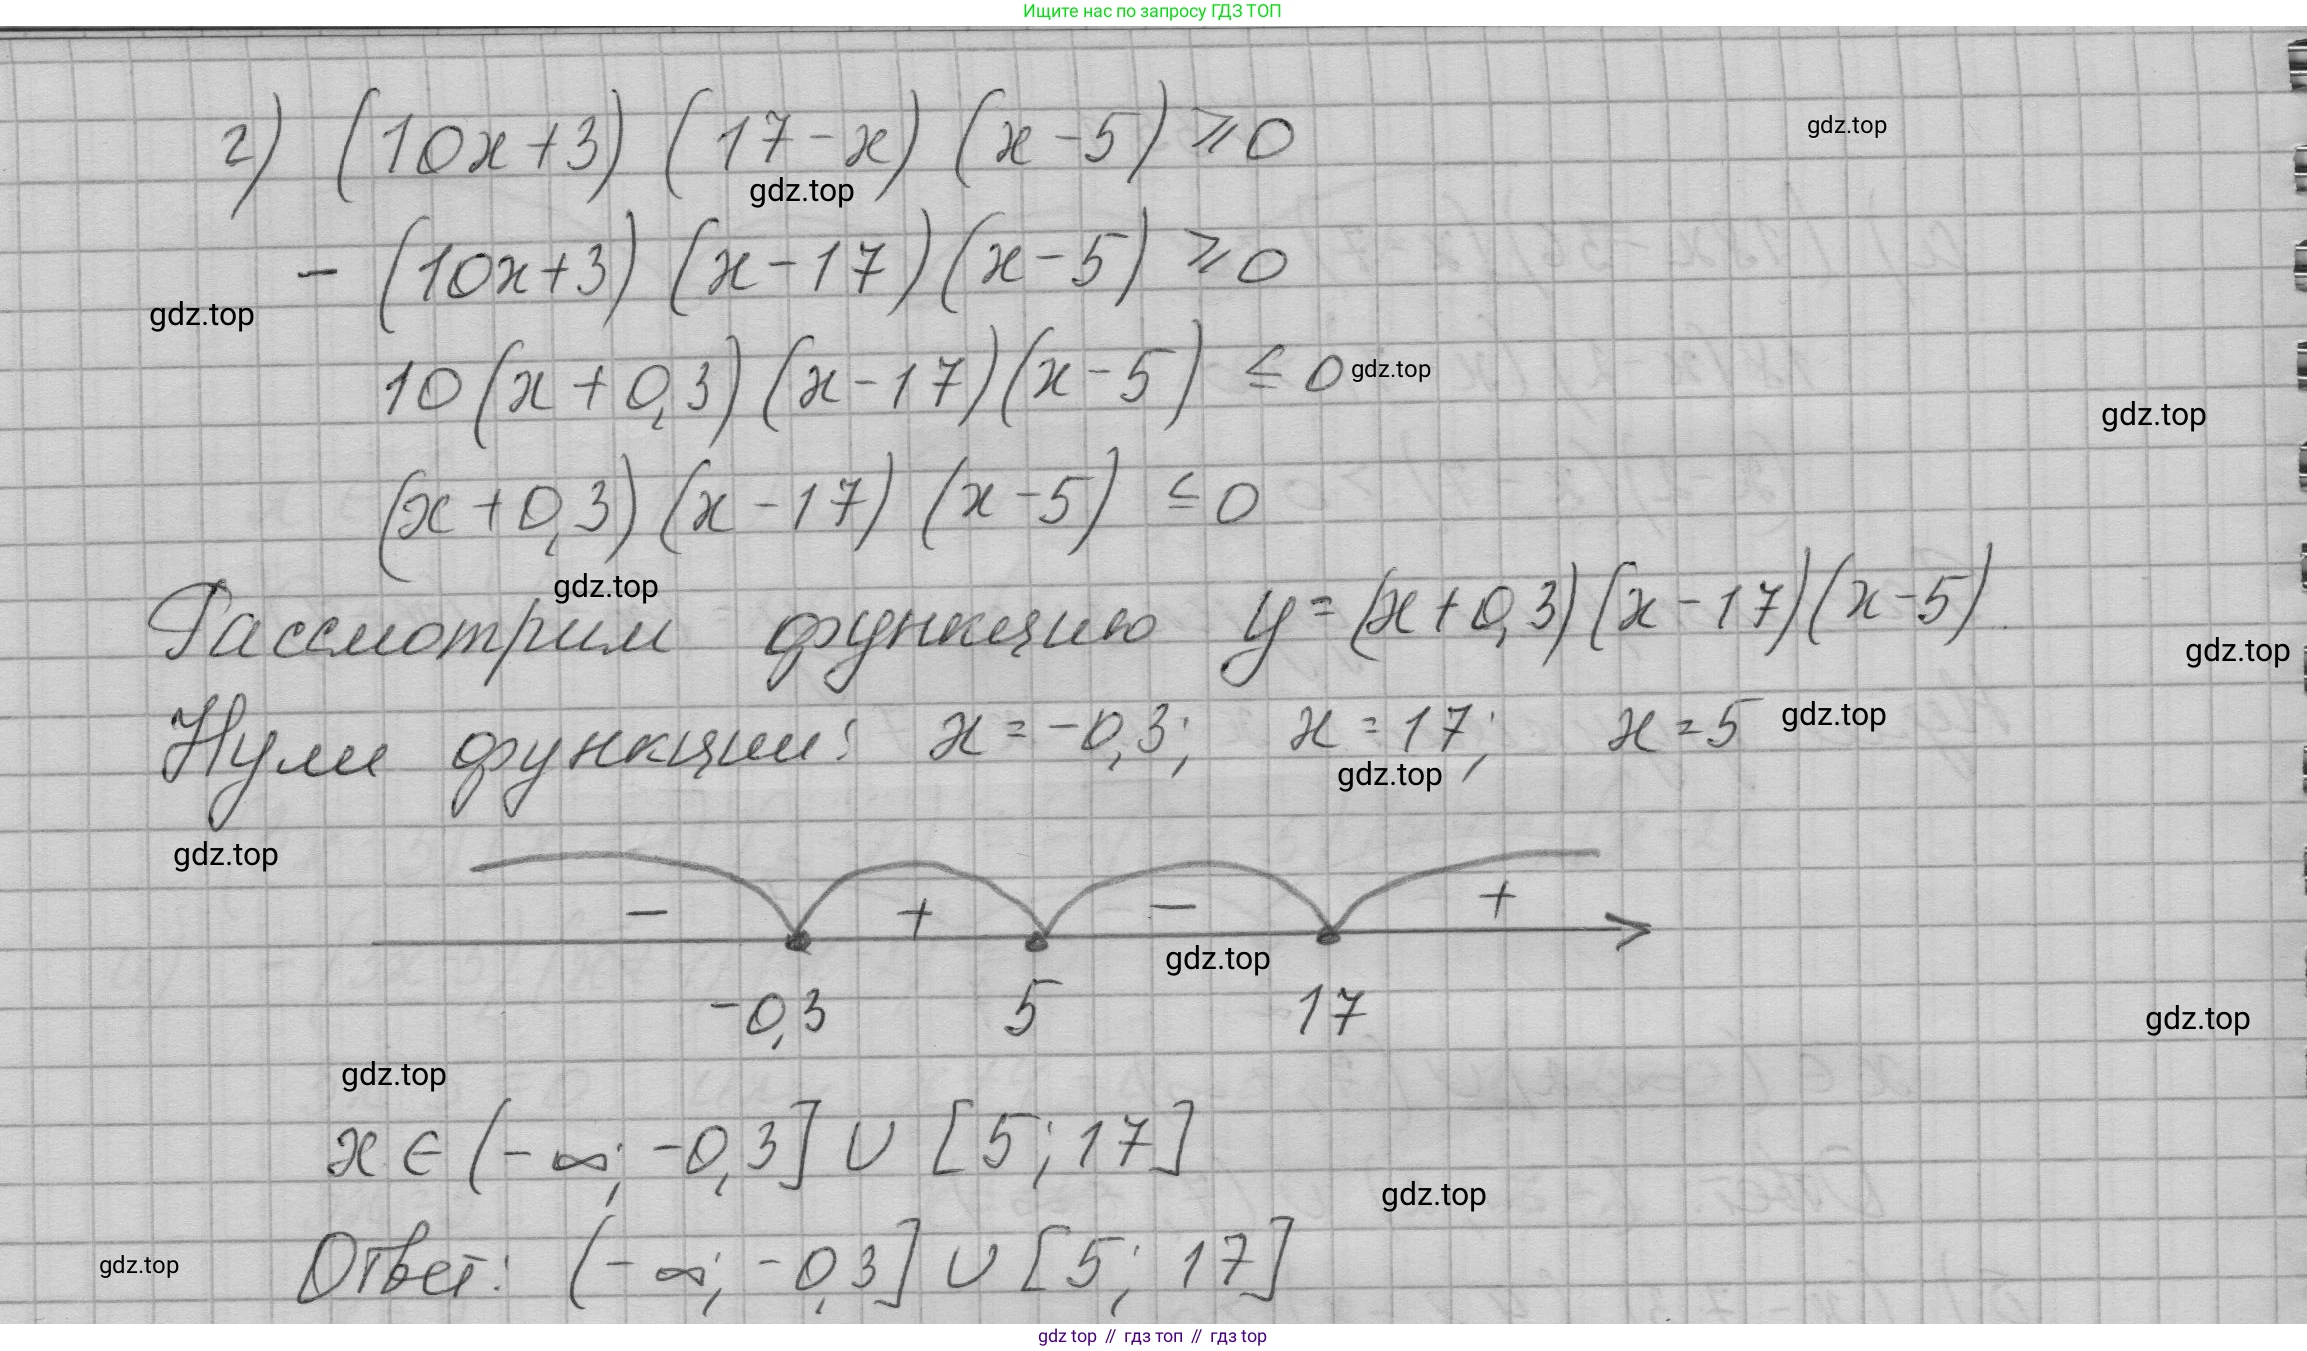 Ищите нас по запросу ГДЗ ТОП
г) (10x+3) (17-x) (x-5) ⩾ 0
gdz.top
gdz.top
- (10x+3) (x-17) (x-5) ⩾ 0
gdz.top
10 (x+0,3) (x-17) (x-5) ≤ 0
gdz.top
gdz.top
(x+0,3) (x-17) (x-5) ≤ 0
gdz.top
Рассмотрим функцию y = (x+0,3) (x-17) (x-5).
gdz.top
Нули функции: x = -0,3; x = 17; x = 5
gdz.top
gdz.top
gdz.top
- + - +
gdz.top
-0,3 5 17
gdz.top
gdz.top
x ∈ (-∞; -0,3] ∪ [5; 17]
gdz.top
Ответ: (-∞; -0,3] ∪ [5; 17]
gdz.top
gdz top // гдз топ // гдз top